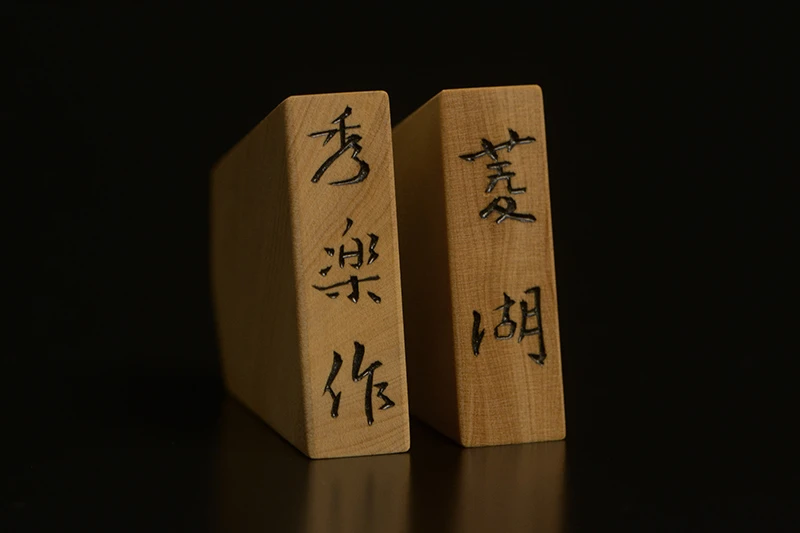 秀楽作
菱湖